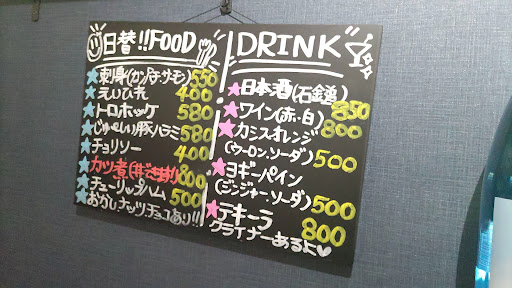 日替!!FOOD
刺身(カンパチ・サーモン) 550
えいひれ 400
トロホッケ 580
じゅ~しぃ豚ハラミ 580
チョリソー 400
カツ煮(丼できます!) 800
チューリップハム 500
おかし・ナッツ・チョコあり!!
DRINK
日本酒(石鎚) 850
ワイン(赤・白) 800
カシスオレンジ
(ウーロン・ソーダ) 500
ヨギーパイン
(ジンジャー・ソーダ) 500
テキーラ 800
クライナーあるよ♡